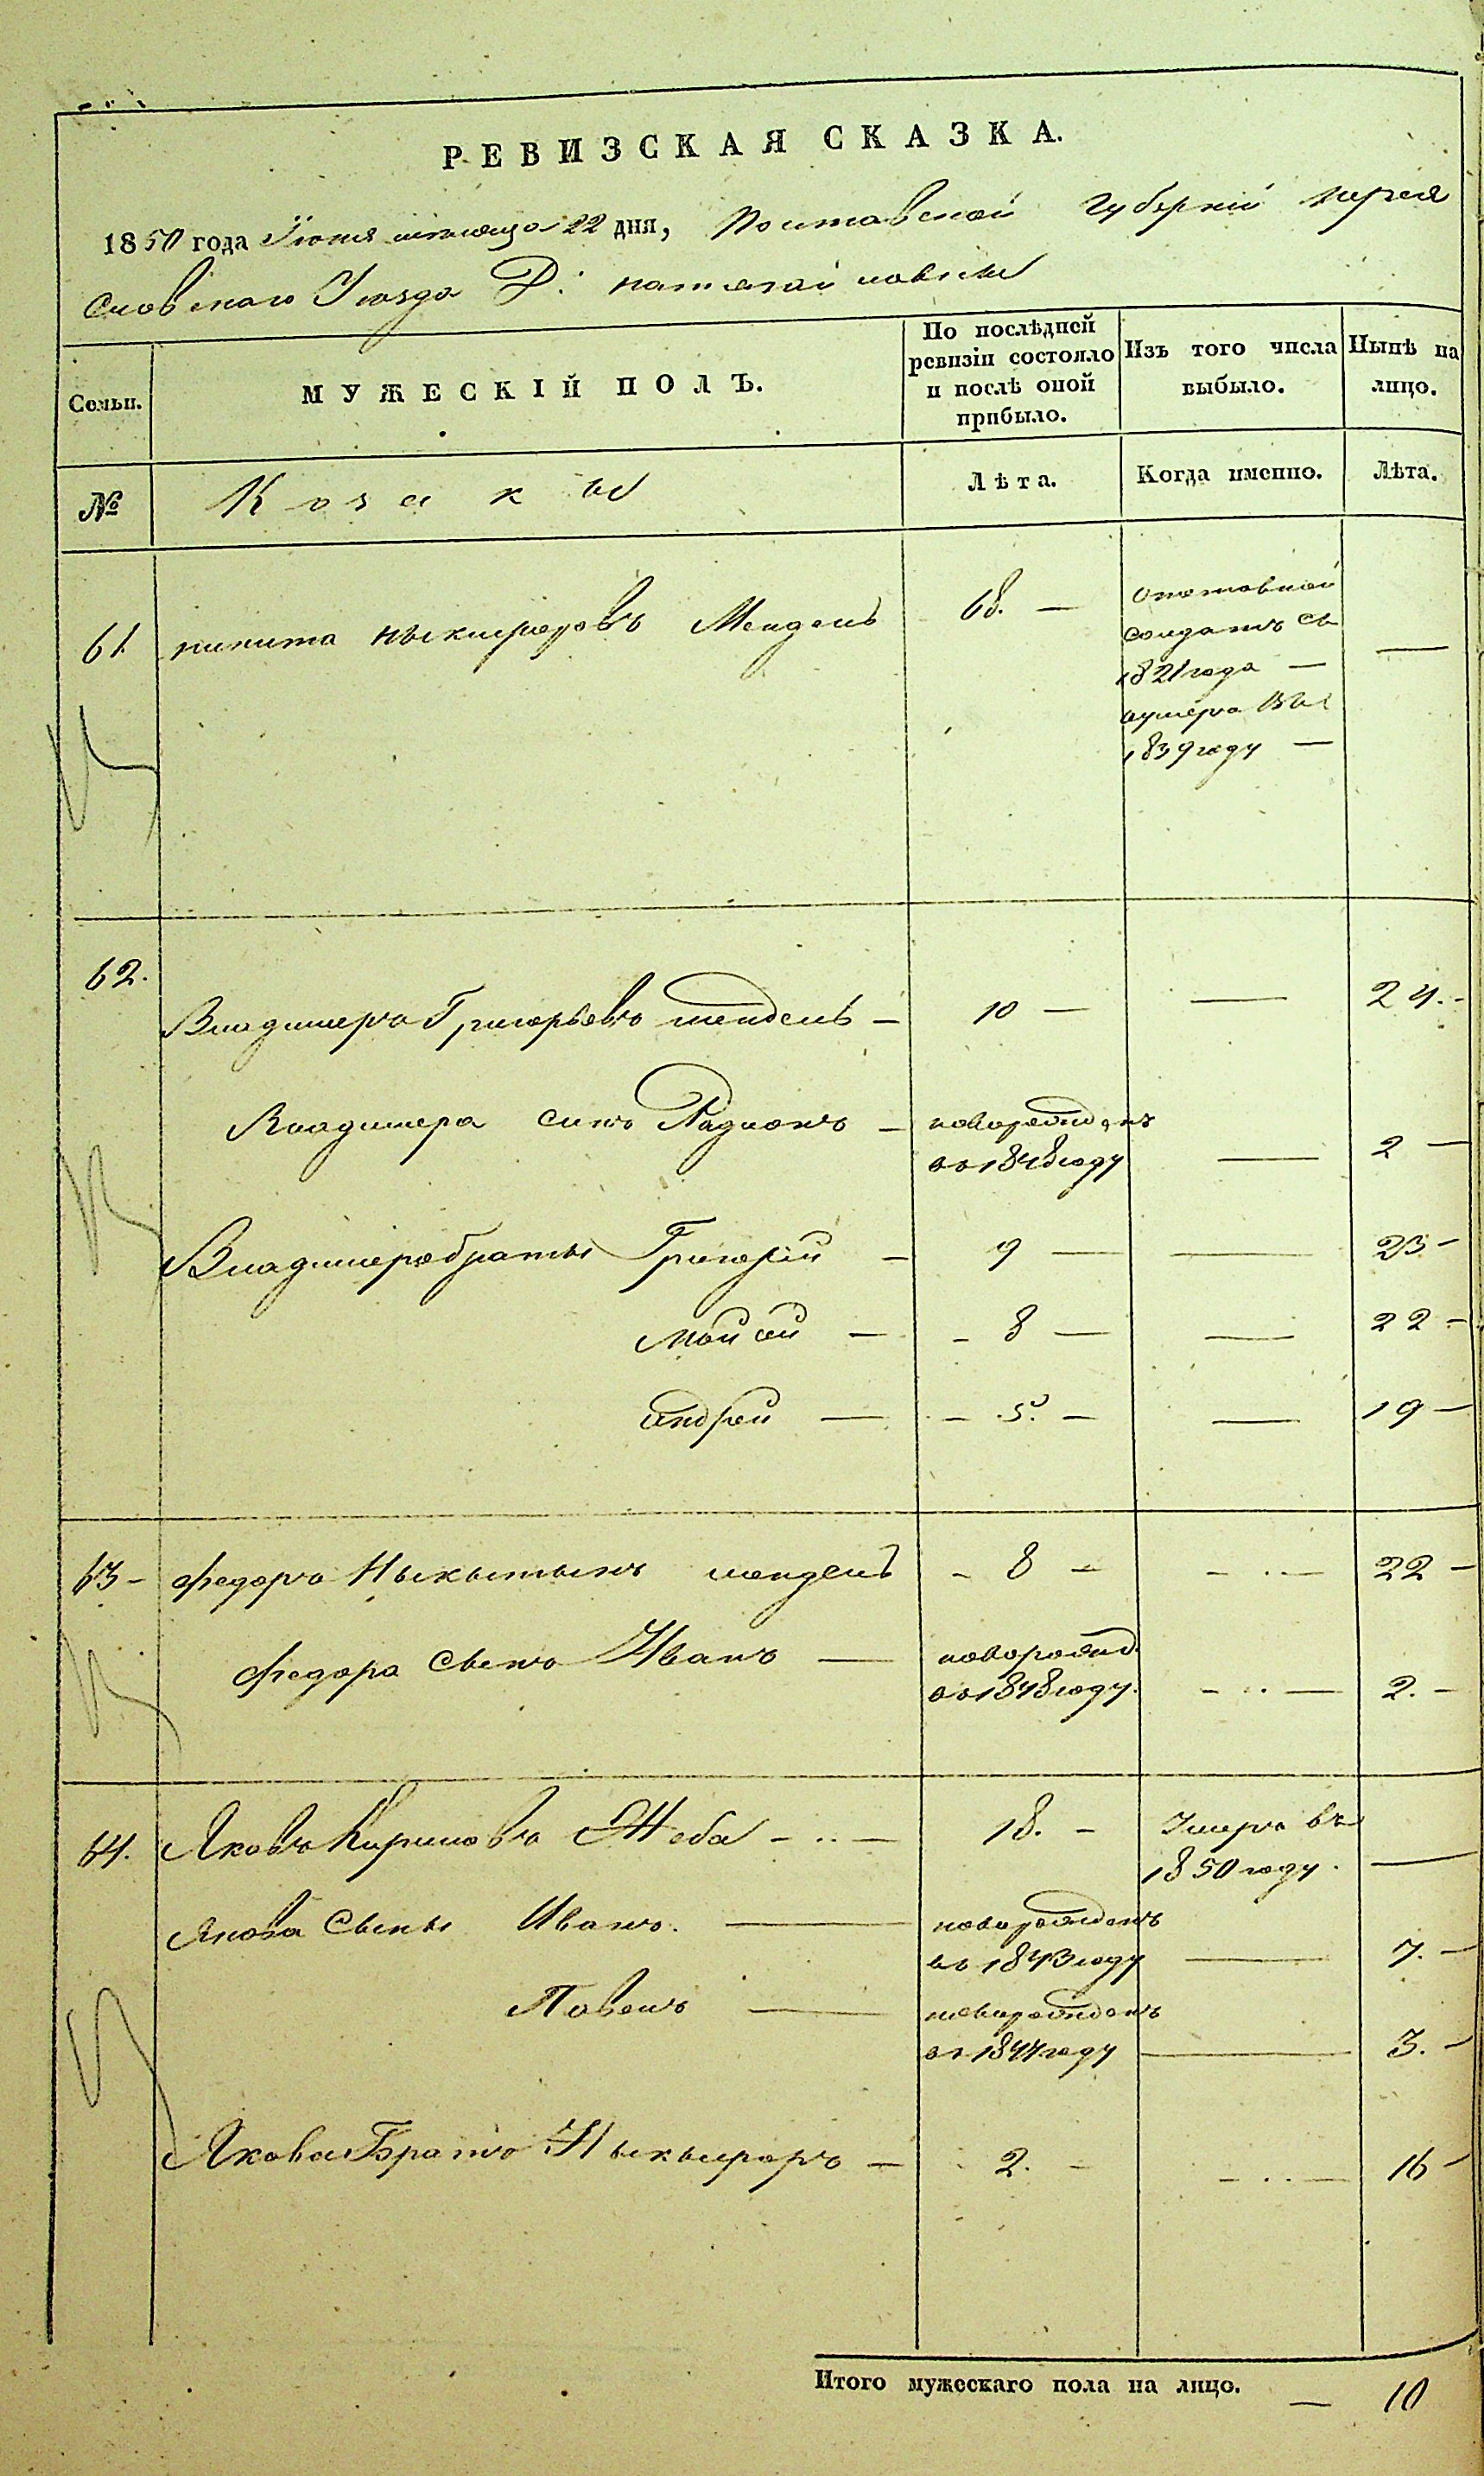 РЕВИЗСКАЯ СКАЗКА.
1850 года Іюня месяца 22 дня, Полтавской Губерніи Перея
словскаго Уезда Д:
Семьи.
МУЖЕСКІЙ ПОЛЪ.
По послѣдней ревизіи состояло и послѣ оной прибыло.
Изъ того числа выбыло.
Нынѣ на лицо.
№
Козакы
Лѣта.
Когда именно.
Лѣта.
61. никита Ныкыфоровъ Мендель 68. —
солдатъ съ
1821 года —
умеръ въ
1839 году —
62.
Владимеръ Григорьевъ мендель — 10 — — 24. -
Владимера синъ Радионъ — новорожденъ
въ 1848 году — 2 —
Владимера браты Григорій — 9 — — 23 -
Мойсей — - 8 — — 22 -
андрей — - 5. - — 19 —
63 - Федоръ Ныкытынъ мендель - 8 - - . — 22 -
Федора Сынъ Иванъ — новорожд.
въ 1848 году. - .. — 2. -
64. Яковъ Кириловъ Жеба - .. — 18. - Умеръ въ
1850 году. —
Якова Сыны Иванъ. — новорожденъ
въ 1843 году — 7. -
Павелъ — новорожденъ
въ 1847 году — 3. -
Якова Братъ Ныкыфоръ — 2. - - .. — 16 -
Итого мужескаго пола на лицо. — 10